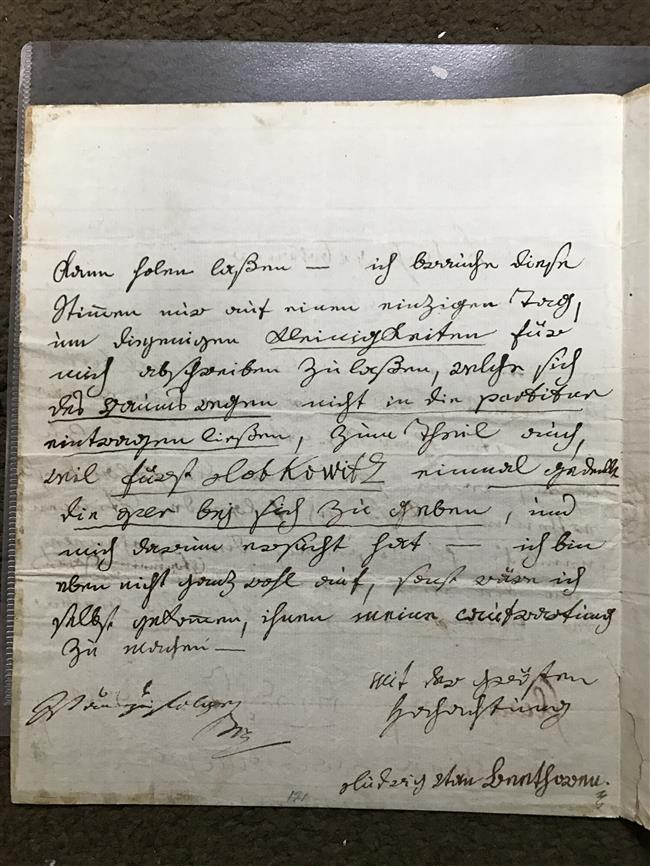 kann holen laßen — ich brauche diese
Stimmen nur auf einen einzigen Tag,
um diejenigen Kleinigkeiten für
mich abschreiben zu laßen, welche sich
des raums wegen nicht in die partitur
eintragen ließen, zum Theil auch,
weil fürst Lobkowitz einmal gedenkt
die oper bej sich zu geben, und
mich darum ersucht hat — ich bin
eben nicht ganz wohl auf, sonst wäre ich
selbst gekommen, ihnen meine aufwartung
zu machen —
mit der grösten
Hochachtung
Ludwig van Beethoven
121